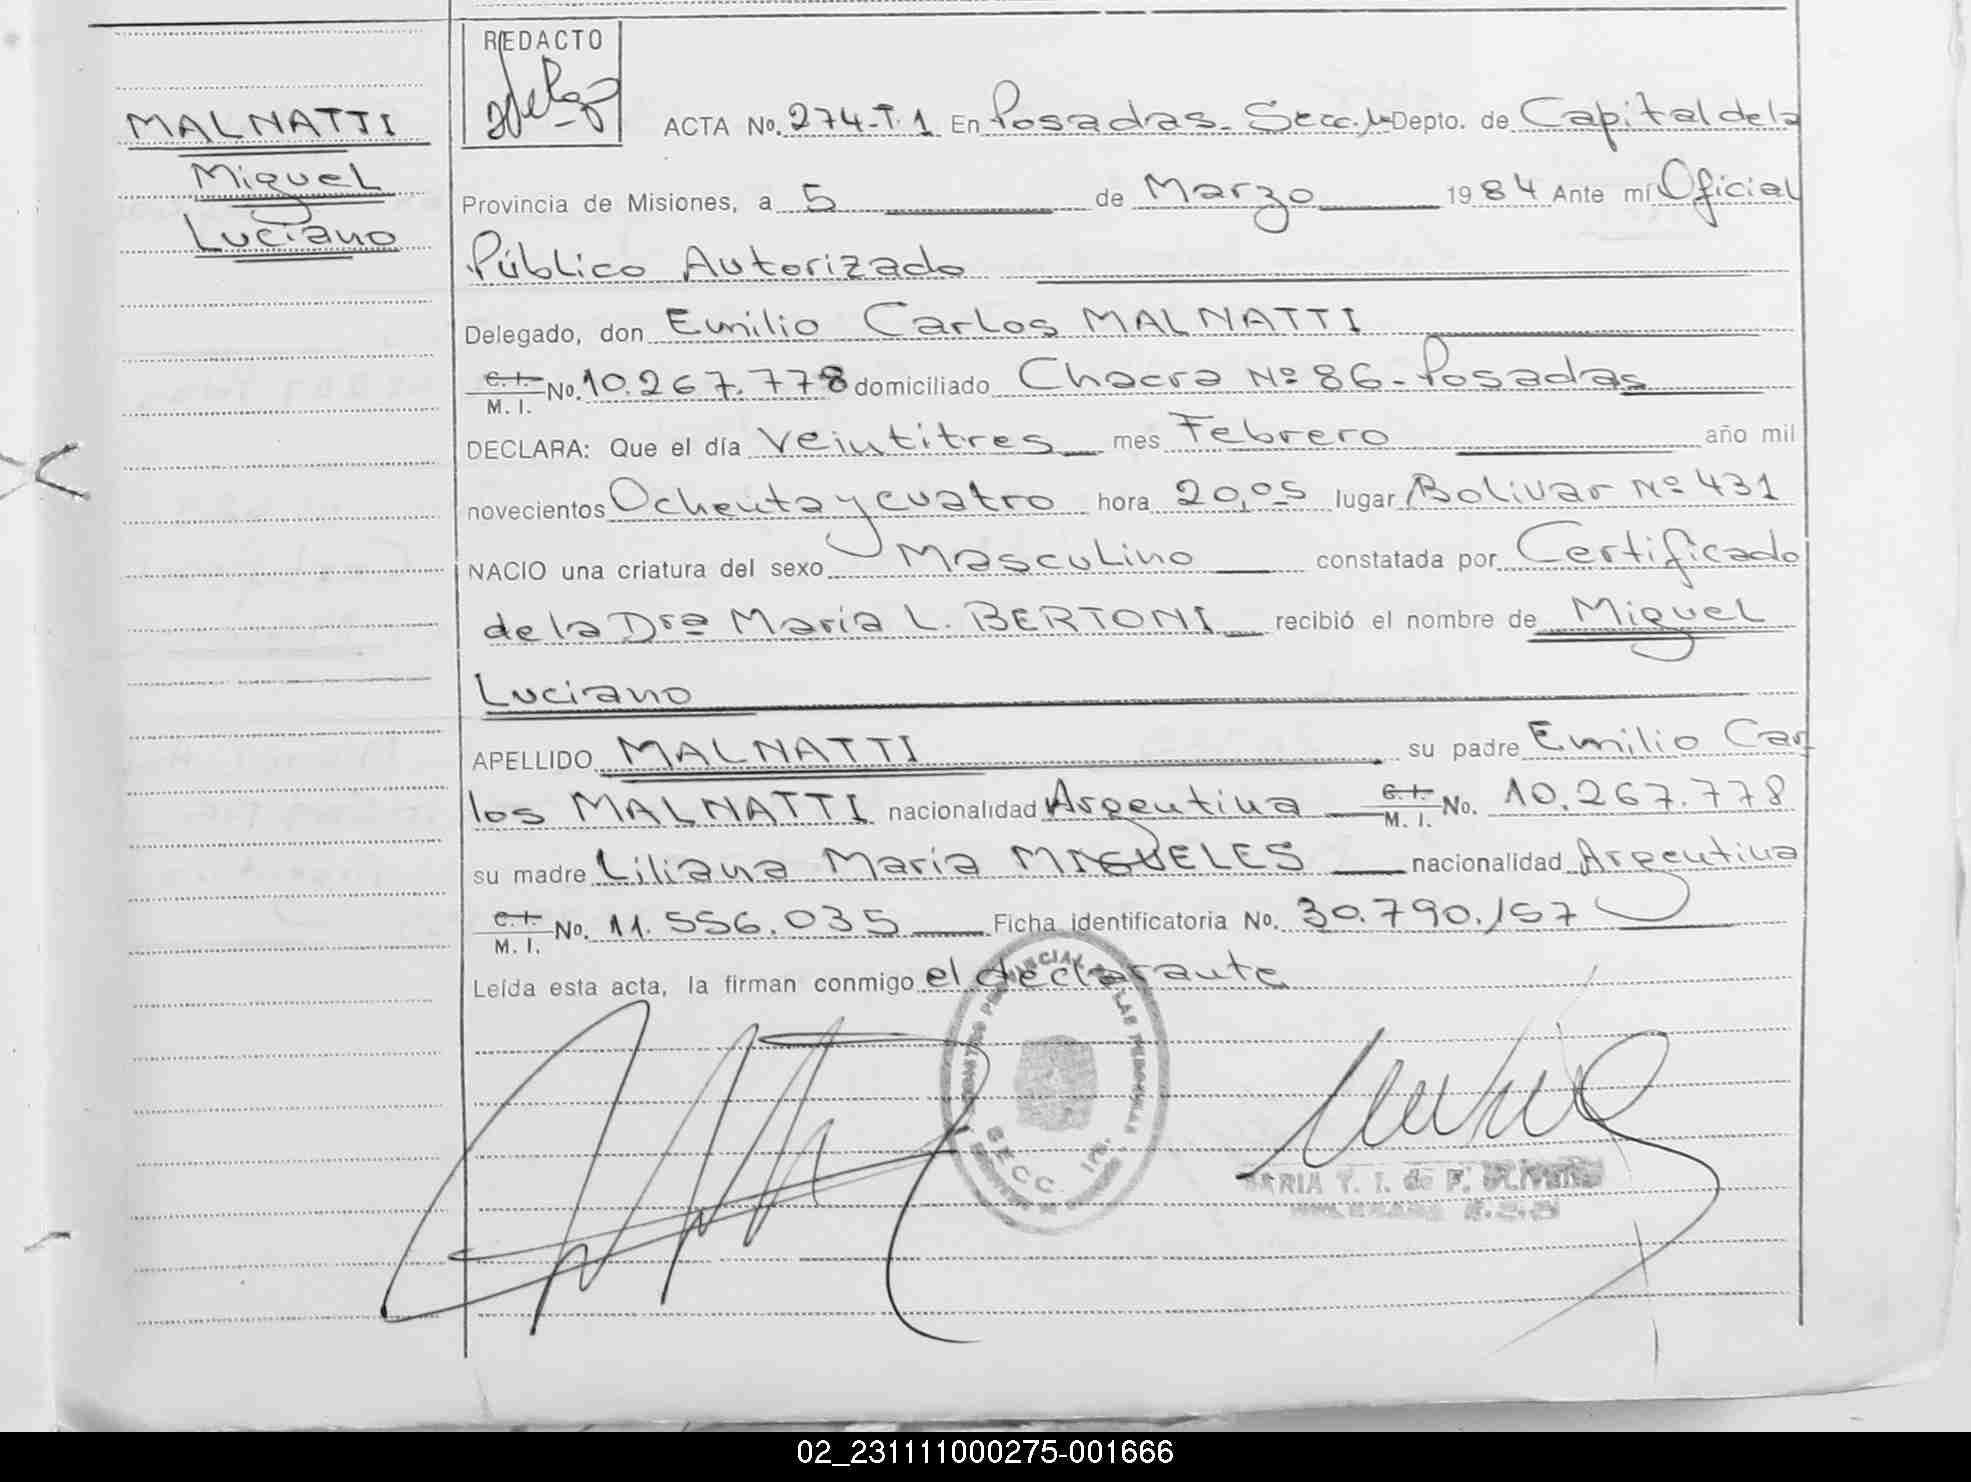 REDACTO
MALNATTI
Miguel
Luciano
ACTA No. 274-T.1 En Posadas- Secc. Depto. de Capital de la
Provincia de Misiones, a 5 de Marzo 1984 Ante mí Oficial
Público Autorizado
Delegado, don Emilio Carlos MALNATTI
C.I. M.I. No. 10.267.778 domiciliado Chacra Nº 86-Posadas
DECLARA: Que el día Veintitres mes Febrero año mil
novecientos Ochenta y cuatro hora 20,05 lugar Bolivar Nº 431
NACIO una criatura del sexo Masculino constatada por Certificado
de la Drª María L. BERTONI recibió el nombre de Miguel
Luciano
APELLIDO MALNATTI su padre Emilio Car
los MALNATTI nacionalidad Argentina C.I. M.I. No. 10.267.778
su madre Liliana María MIGUELES nacionalidad Argentina
C.I. M.I. No. 11.556.035 Ficha identificatoria No. 30.790.157
Leída esta acta, la firman conmigo el declarante
SECC.
MARIA T. I. de F.
02_231111000275-001666